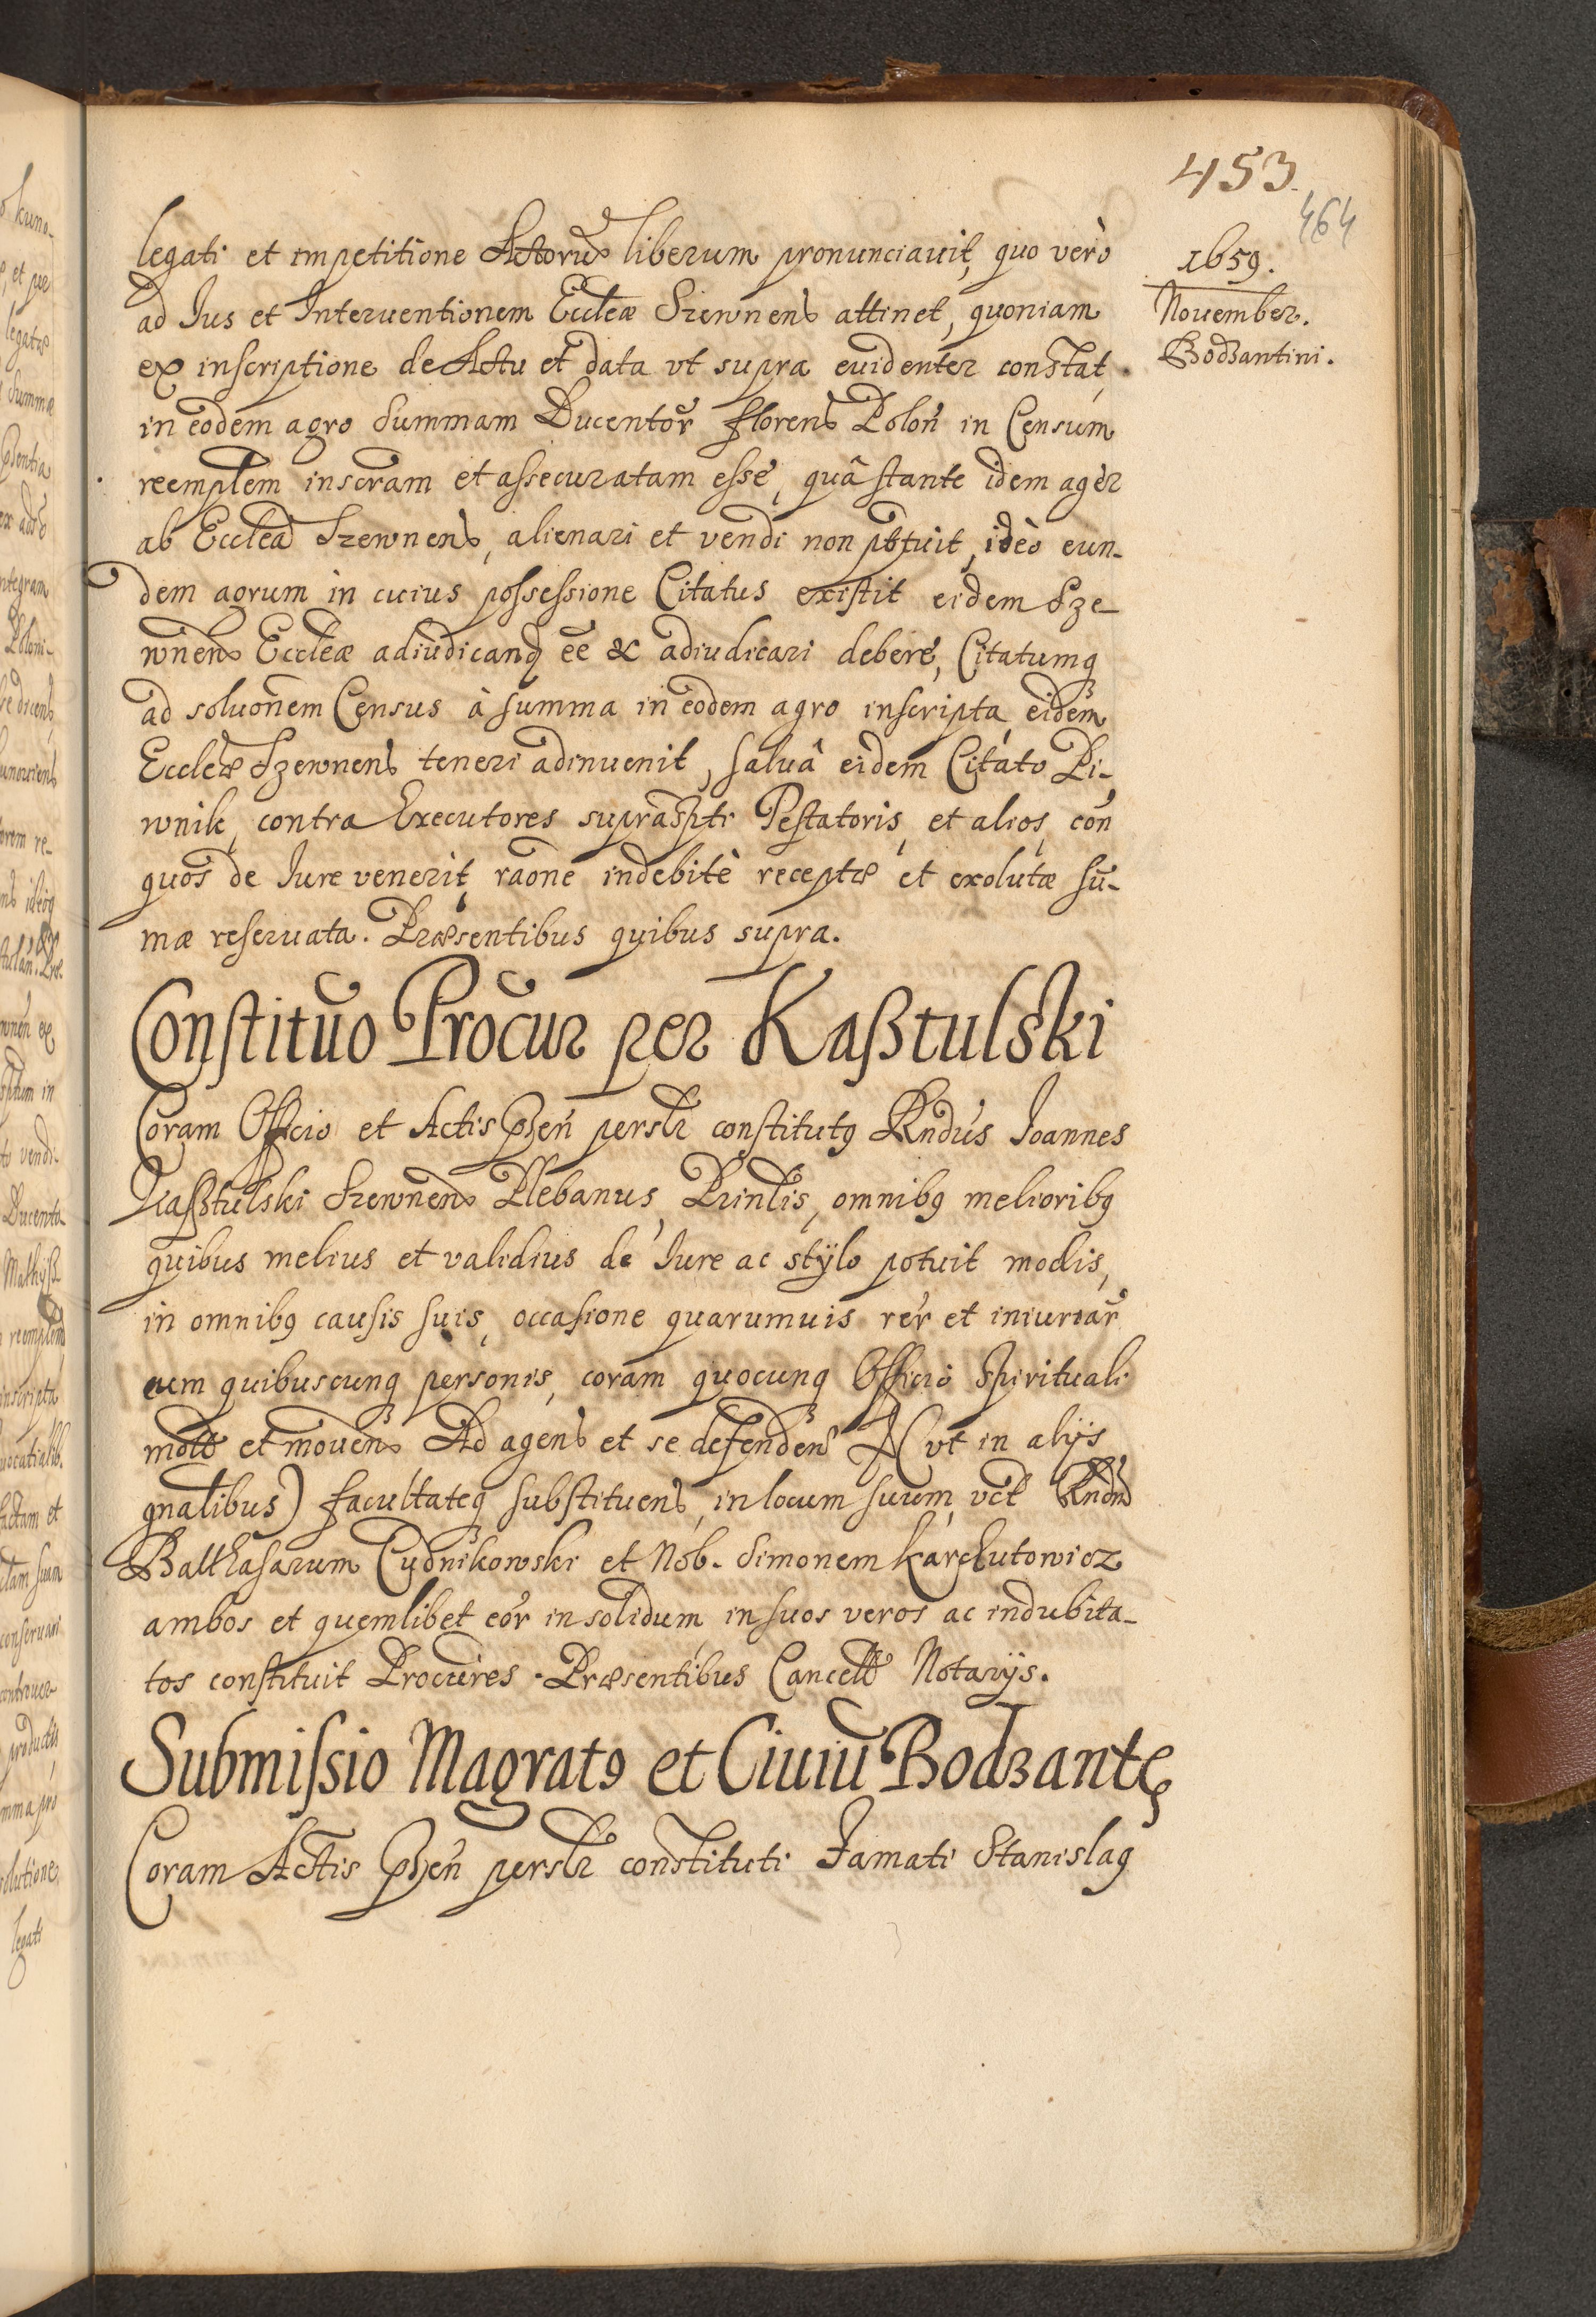 453.
464
1659.
Nouember.
Bodzantini.
legati et impetitione Actorũ liberum pronunciauit, quo verò
ad Ius et Interuentionem Eccleæ Szewnens attinet, quoniam
ex inscriptione de Actu et data vt supra euidenter constat,
in eodem agro Summam Ducentor̃ florens Polon̄ in Censum
reemplem inscram et assecuratam esse, quâ stante idem ager
ab Ecclea Szewnens, alienari et vendi non potuit, ideò eun-
dem agrum in cuius possessione Citatus existit eidem Sze-
wnens Eccleæ adiudicand ee̅ & adiudicari debere, Citatumq
ad soluonem Census à summa in eodem agro inscripta eidem
Eccleæ Szewnens teneri adinuenit, saluâ eidem Citato Pi-
wnik, contra Executores suprascpti Testatoris, et alios, con̄
quos de Iure venerit, raõne indebitè receptæ et exolutæ su̅-
mæ reseruata. Præsentibus quibus supra.
Constituo Procur per Kaßtulski
Coram Officio et Actis Pn̄ sen̄ persl̃r constitutq Rndus Ioannes
Kaßtulski Szewnens Plebanus, Prinl̃is, omnibq melioribq
quibus melius et validius de Iure ac stÿlo potuit modis,
in omnibq causis suis, occasione quarumuis rer̃ et iniuriar̃
cum quibuscunq personis, coram quocunq Officio Spirituali
motis et mouens Ad agens et se defendens &(vt in alijs
gnalibus) facultateq substituens, in locum suum, vct Rndm
Balthasarum Cudnikowski et Nob. Simonem Karchutowicz
ambos et quemlibet eor̃ in solidum in suos veros ac indubita-
tos constituit Procures. Præsentibus Cancell Notarijs.
Submissio Magratq et Ciuiu̅ Bodzantę
Coram Actis Pn̄ sen̄ persl̃r constituti Famati Stanislaq